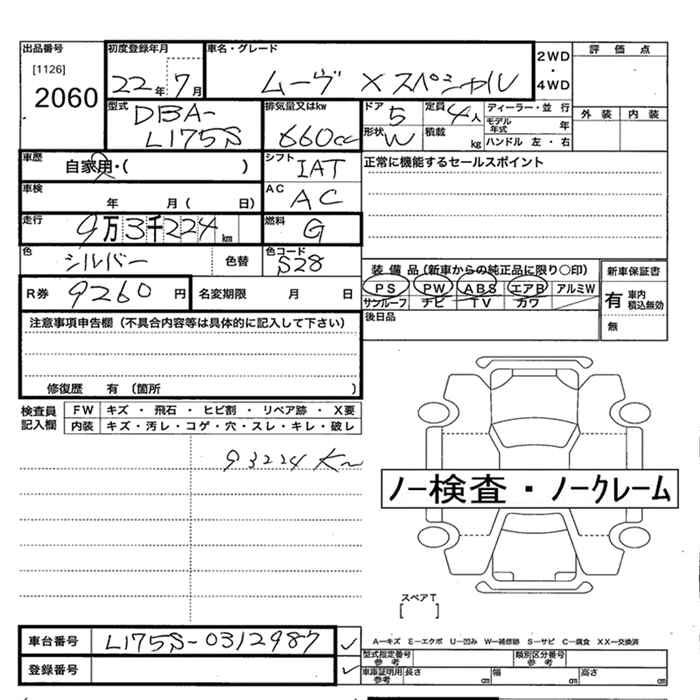 出品番号 初度登録年月 車名・グレード 2WD・4WD 評価点
[1126]
2060 22年 7月 ムーヴ Xスペシャル
外装 内装
型式 DBA-L175S 排気量又はkw 660cc ドア 5 定員 4人 ディーラー・並 行
形状 W 積載 kg モデル年式 年
ハンドル 左・右
車歴 自家用・( ) シフト IAT 正常に機能するセールスポイント
車検 年 月( 日) AC AC
走行 9万3千224km 燃料 G
色 シルバー 色替 色コード S28
装備品(新車からの純正品に限り○印) 新車保証書
R券 9260円 名変期限 月 日 PS PW ABS エアB アルミW 有 車内積込無効
サンルーフ ナビ TV カワ
注意事項申告欄(不具合内容等は具体的に記入して下さい) 後日品 無
修復歴 有(箇所 )
検査員記入欄 FW キズ・飛石・ヒビ割・リペア跡・X要
内装 キズ・汚レ・コゲ・穴・スレ・キレ・破レ
93224Km
ノー検査・ノークレーム
スペアT
[ ]
車台番号 L175S-0312987 A-キズ E-エクボ U-凹み W-補修跡 S-サビ C-腐食 XX-交換済
型式指定番号 参考 類別区分番号 参考
登録番号 車庫証明用 参考 長さ cm 幅 cm 高さ cm